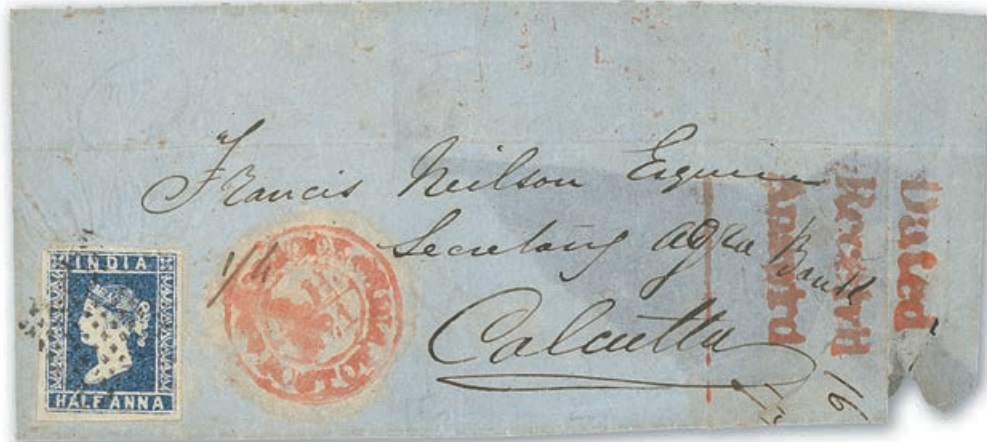 Francis Neilson Esquire
Secretary Agra Bank
Calcutta
1/4
INDIA
HALF ANNA
Dated
Received
Answered
16